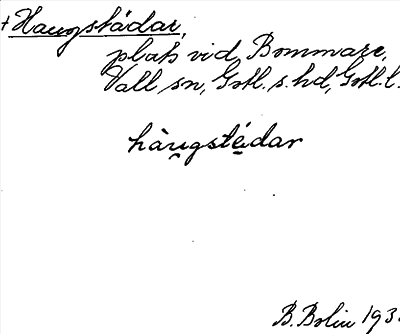 +Haugstádar,
plats vid Bommare,
Vall sn, Gotl. s. hd, Gotl. l.
hàugstédar
B. Bolin 193